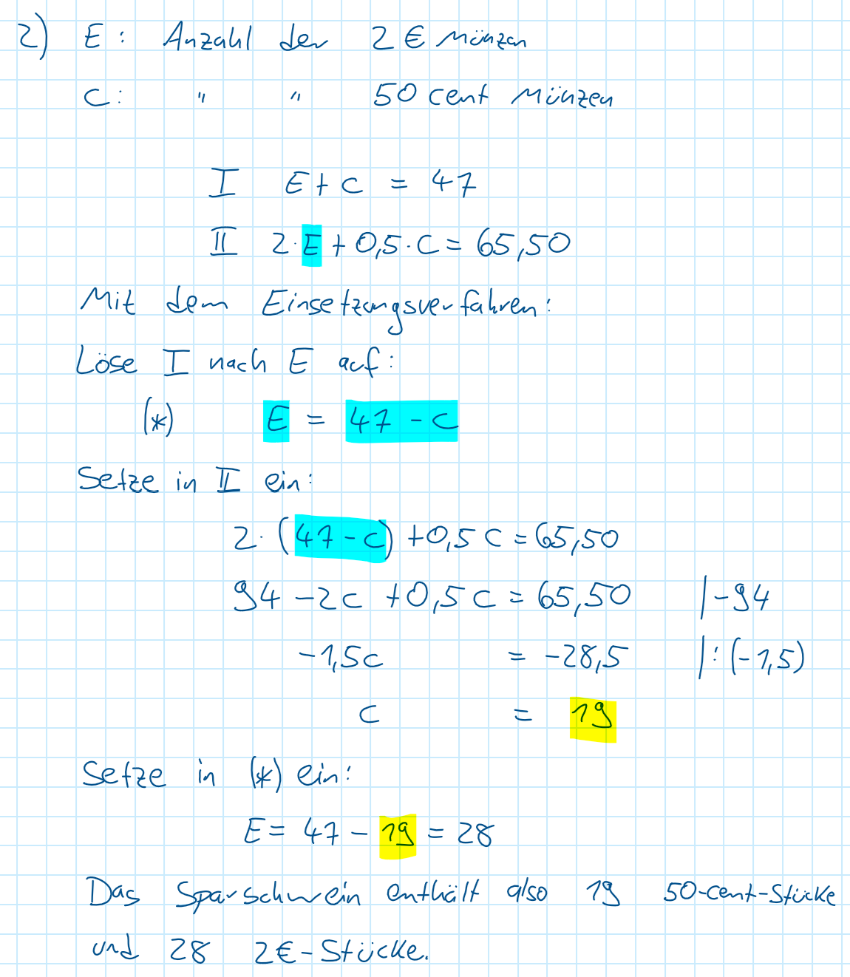 2) E: Anzahl der 2€ Münzen
C: " " 50 cent Münzen
I E + C = 47
II 2·E + 0,5·C = 65,50
Mit dem Einsetzungsverfahren:
Löse I nach E auf:
(*) E = 47 - C
Setze in II ein:
2·(47-C) + 0,5C = 65,50
94 - 2C + 0,5C = 65,50 |-94
-1,5C = -28,5 |:(-1,5)
C = 19
Setze in (*) ein:
E = 47 - 19 = 28
Das Sparschwein enthält also 19 50-cent-Stücke
und 28 2€-Stücke.